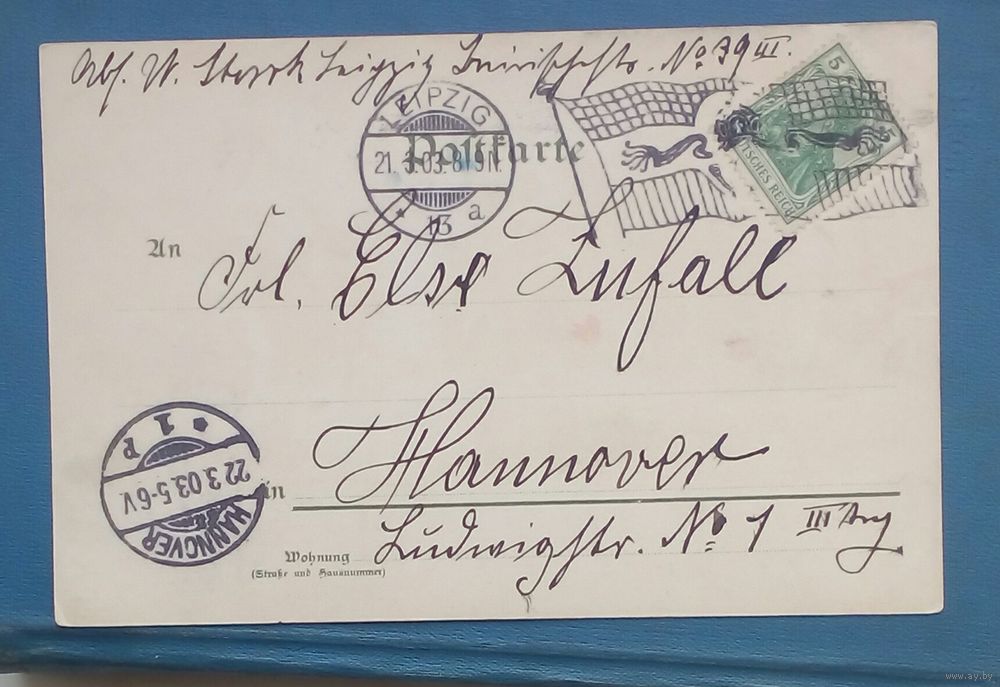 Abs. W. Leipzig No. 39 III.
5
5
DEUTSCHES REICH
LEIPZIG
21.3.03.8-9N.
* 13 a
Postkarte
An
Frl. Else Lufall
HANNOVER
22.3.03.5-6V.
* 1 P
in Hannover
Wohnung Ludwigstr. No. 1 III
(Straße und Hausnummer)
www.ay.by